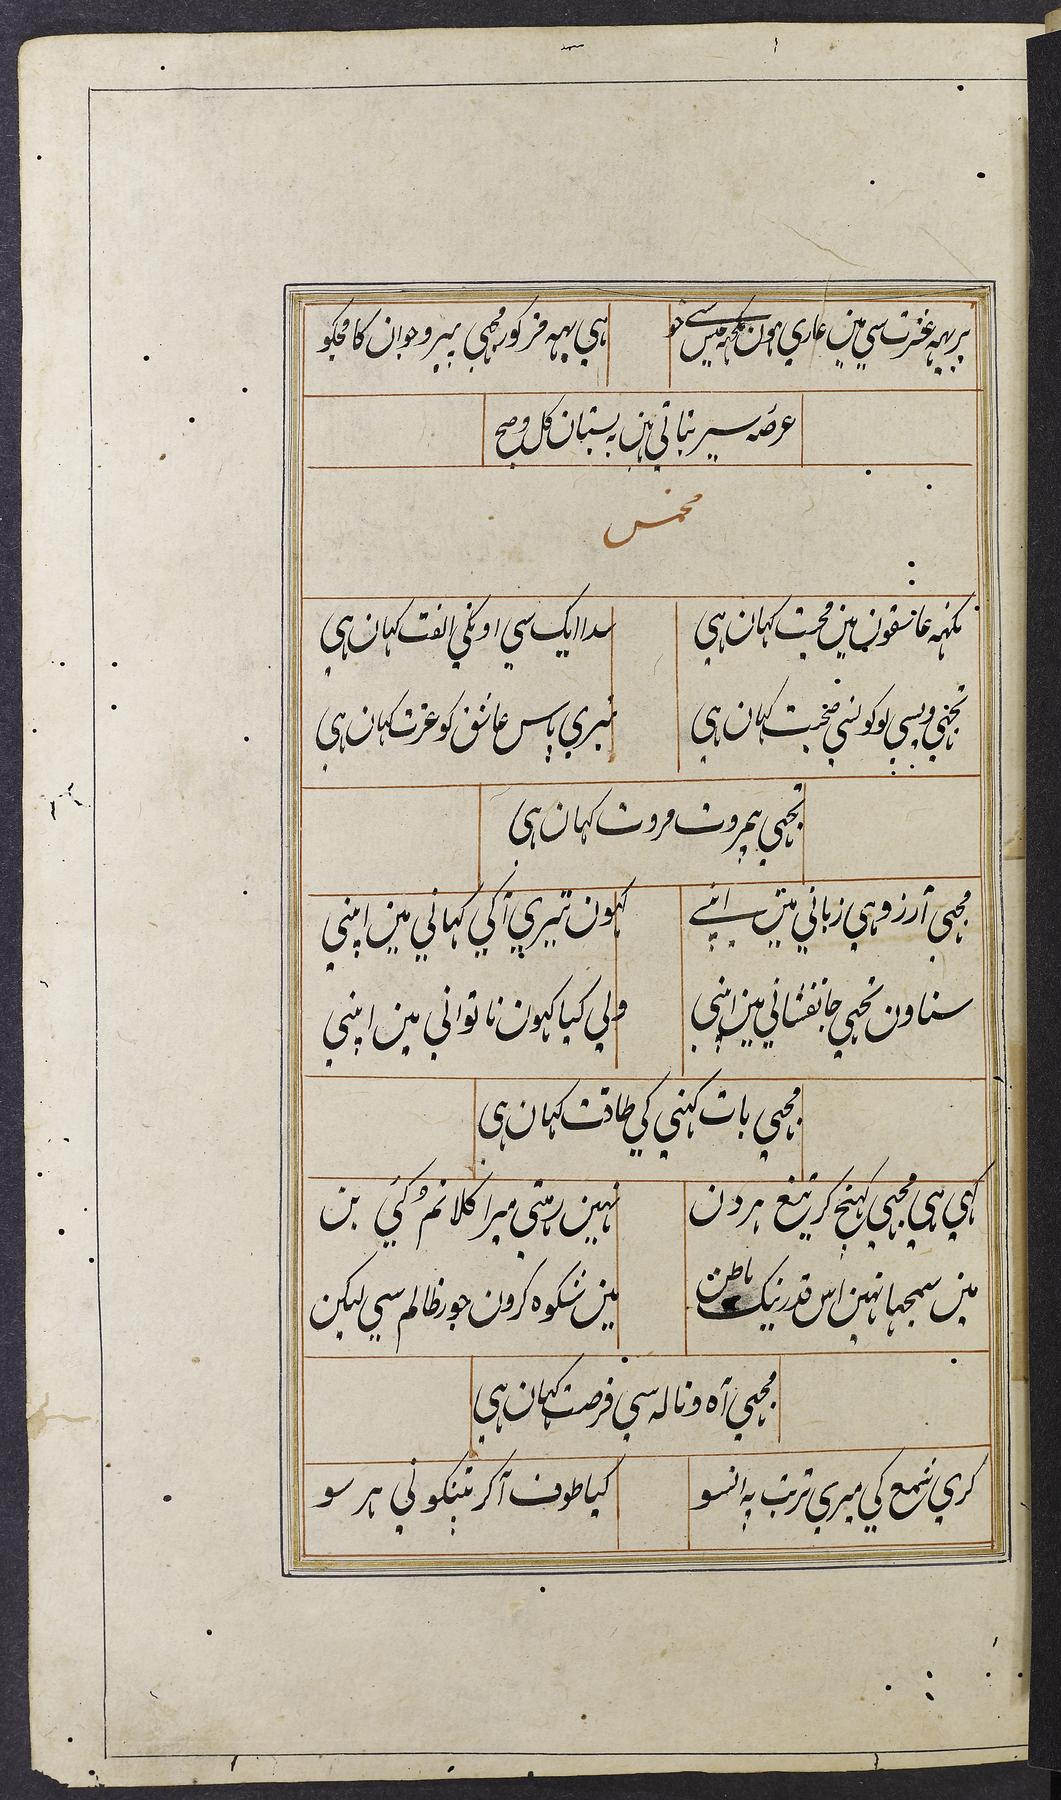 پر یہہ غیرت سی مین عاری ہون مجہہ مین سی خو
ہی یہہ مذکور مجہی پیر و جوان کا مجکو
عرصہ سیر بتاتی ہین بہ بستان کل و صبح
مخمس
نکنہہ عاشقون مین محبت کہان ہی
سدا ایک سی اونکی الفت کہان ہی
تجہی ویسی لوکونسی صحبت کہان ہی
تیری پاس عاشق کو عزت کہان ہی
تجہی بیمروت مروت کہان ہی
مجہی آرزو ہی زبانی مین اپنے
کہون تیری آکی کہانی مین اپنی
سناون تجہی جانفشانی مین اپنی
ولی کیا کہون ناتوانی مین اپنی
مجہی بات کہنی کی طاقت کہان ہی
کہی ہی مجہی کہنچ کر تیغ ہر دن
نہین رہتی میرا کلا تم کئی بن
مین سمجہا نہین اس قدر نیک باطن
مین شکوہ کرون جور ظالم سی لیکن
مجہی آہ و نالہ سی فرصت کہان ہی
کری شمع کی میری تربت پہ انسو
کیا طوف آکر پتنکونی ہر سو